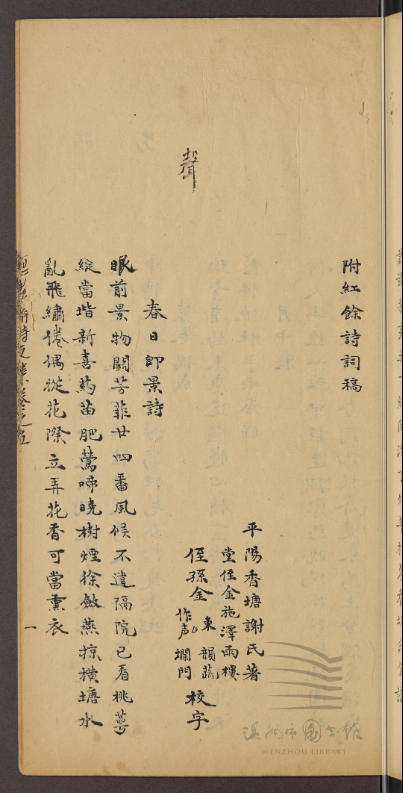 附紅餘詩詞稿
平陽香塘謝氏著
堂侄金施澤雨樓
侄孫金東韻蔬
作商瀾門
校字
聲
春日即景詩
眼前景物鬭芳菲廿四番風候不違福院已看桃萼
綻當堦新喜葯苗肥鶯啼曉樹煙徐斂燕掠橫塘水
亂飛繡倦偶從花際立弄花香可當熏衣
一
溫州市圖書館
WENZHOU LIBRARY